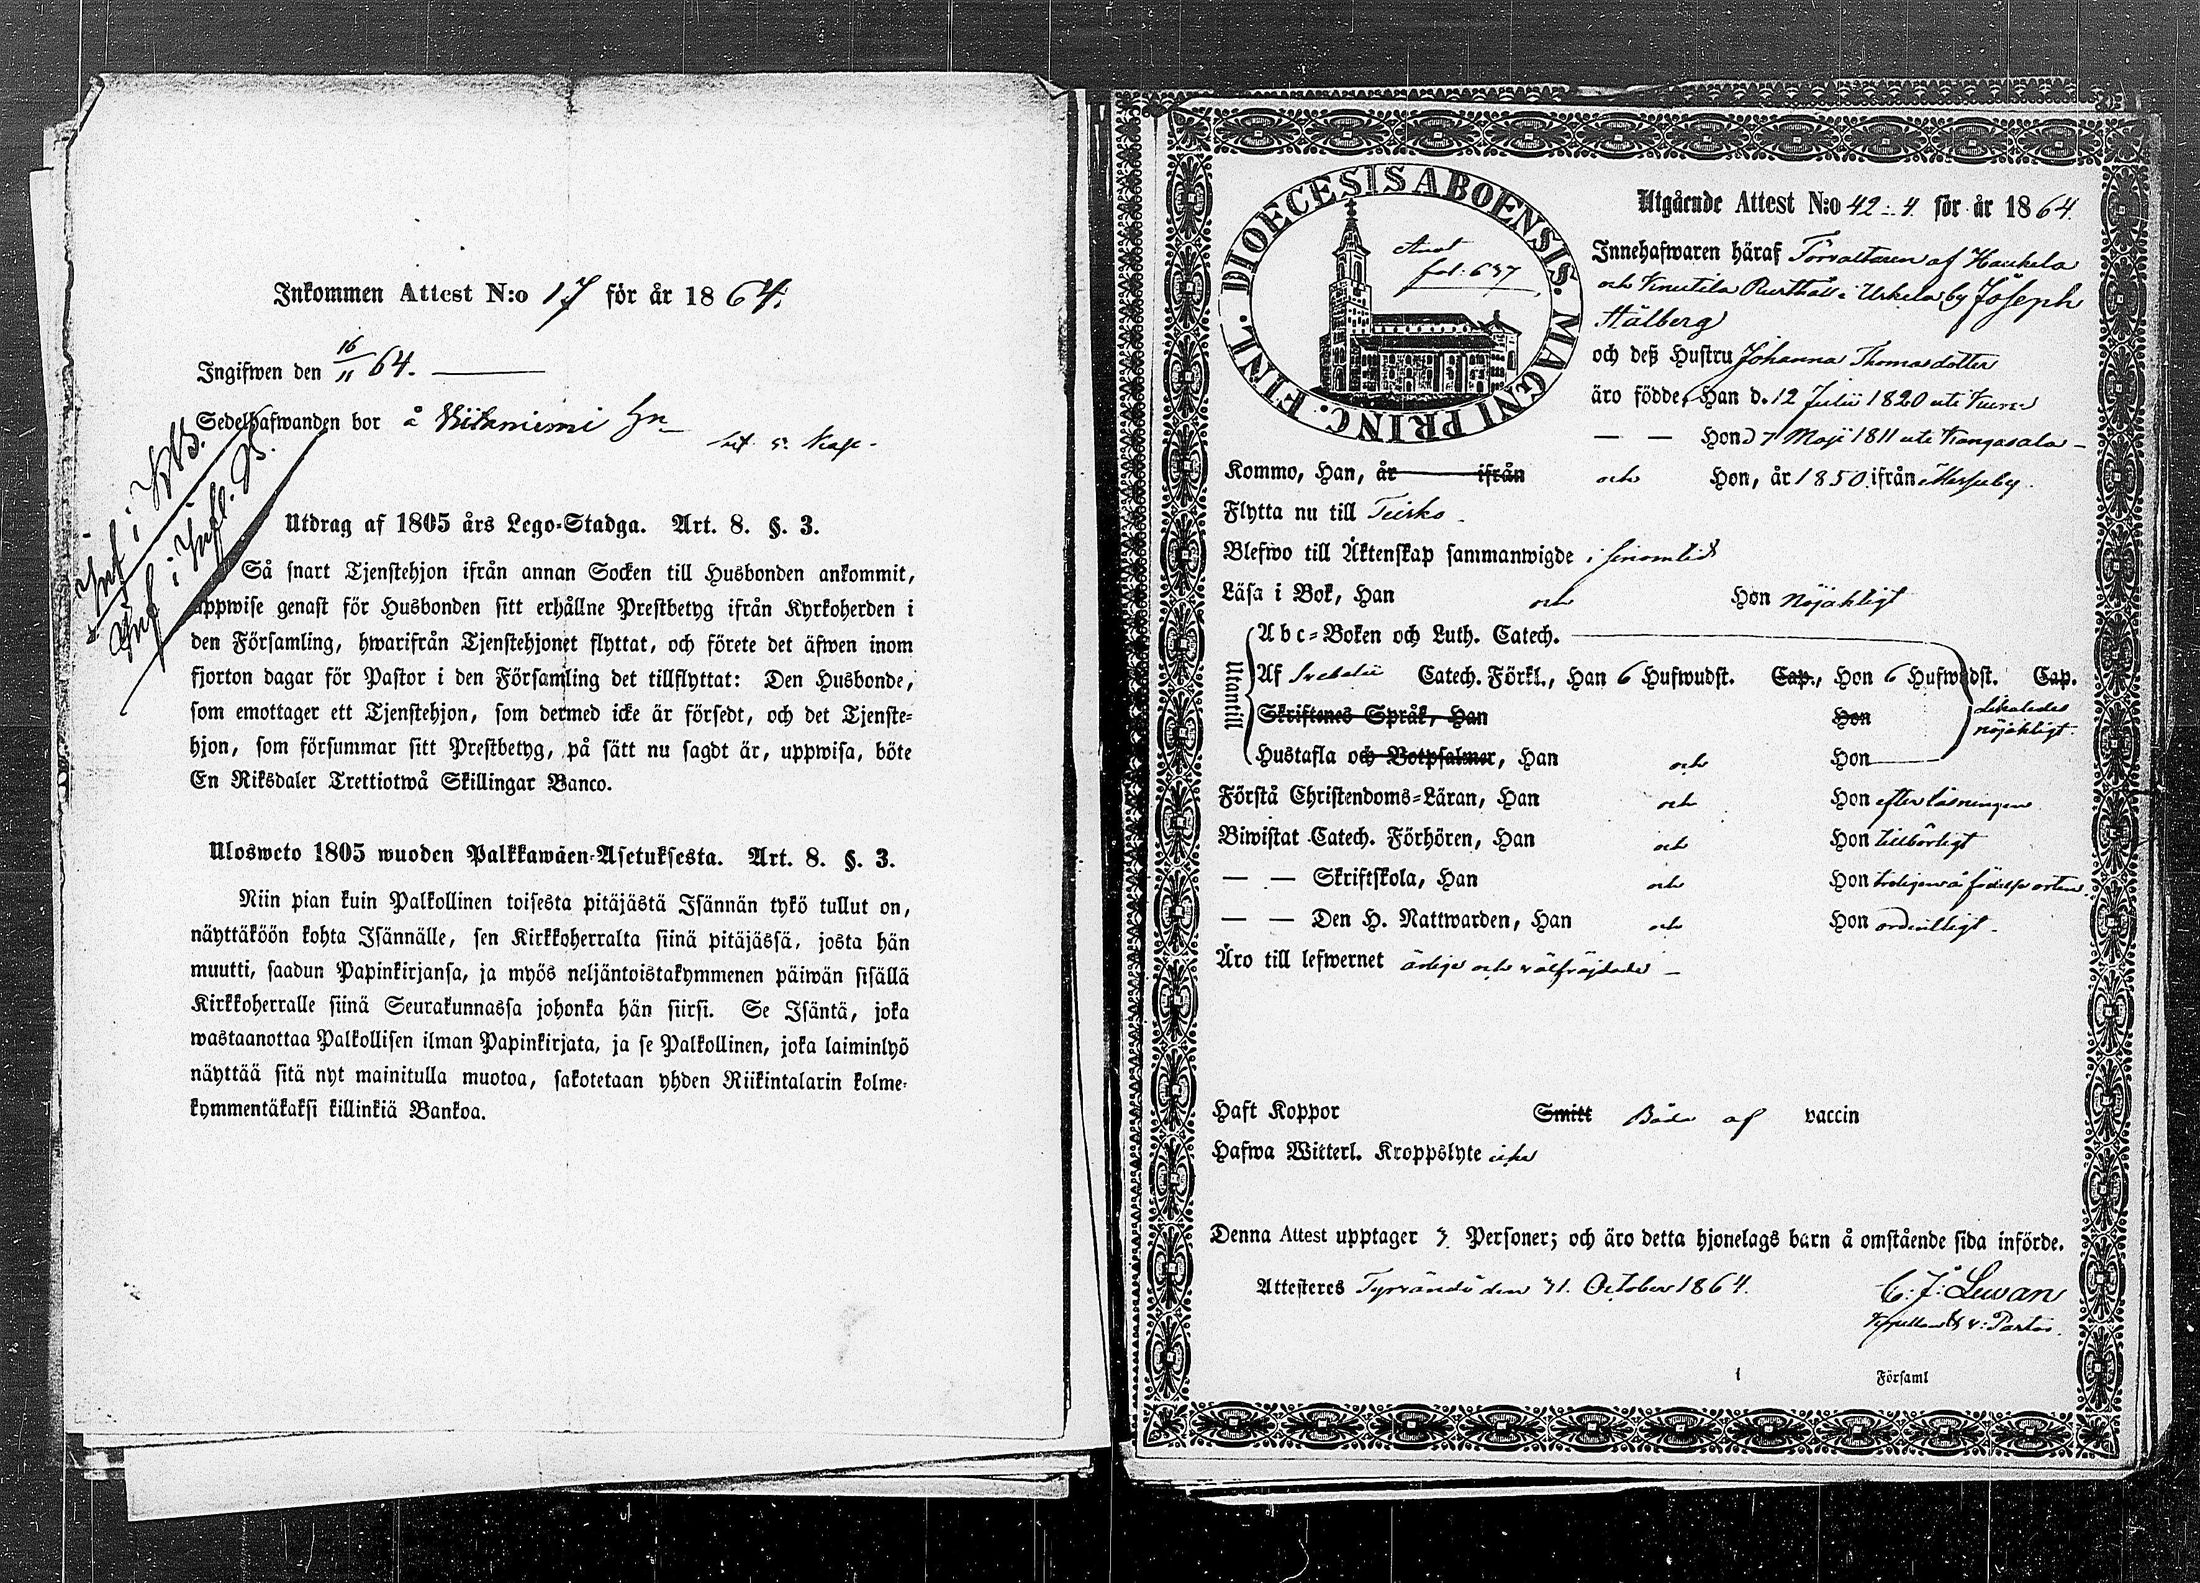 Inkommen Attest N:o 17 för år 1864.
Ingifwen den 16/11 64.
Sedelhafwanden bor å
Inf i
Inf i Infl. B.
Utdrag af 1805 års Lego-Stadga. Art. 8. §. 3.
Så snart Tjenstehjon ifrån annan Socken till Husbonden ankommit,
uppwise genast för Husbonden sitt erhållne Prestbetyg ifrån Kyrkoherden i
den Församling, hwarifrån Tjenstehjonet flyttat, och förete det äfwen inom
fjorton dagar för Pastor i den Församling det tillflyttat: Den Husbonde,
som emottager ett Tjenstehjon, som dermed icke är försedt, och det Tjenste-
hjon, som försummar sitt Prestbetyg, på sätt nu sagdt är, uppwisa, böte
En Riksdaler Trettiotwå Skillingar Banco.
Ulosweto 1805 wuoden Palkkawäen-Asetuksesta. Art. 8. §. 3.
Niin pian kuin Palkollinen toisesta pitäjästä Isännän tykö tullut on,
näyttäköön kohta Isännälle, sen Kirkkoherralta siinä pitäjässä, josta hän
muutti, saadun Papinkirjansa, ja myös neljäntoistakymmenen päiwän sisällä
Kirkkoherralle siinä Seurakunnassa johonka hän siirsi. Se Isäntä, joka
wastaanottaa Palkollisen ilman Papinkirjata, ja se Palkollinen, joka laiminlyö
näyttää sitä nyt mainitulla muotoa, sakotetaan yhden Riikintalarin kolme-
kymmentäkaksi killinkiä Bankoa.
DIOECESIS ABOENSIS. MAGNI PRINC. FINL.
fol: 637
Utgående Attest N:o 42 för år 1864.
Innehafwaren häraf Förvaltaren af Haukela
och Knutila Rusthåll i Urkela by Joseph
Stålberg
och deß Hustru Johanna Thomasdotter
äro födde, Han d. 12 Julii 1820 uti
— — Hon d 7 Maji 1811 uti Kangasala —
Kommo, Han, år ifrån och Hon, år 1850 ifrån Messuby.
Flytta nu till Teisko.
Blefwo till Äktenskap sammanwigde i sinom tid
Läsa i Bok, Han och Hon nöjaktigt
Utantill
Abc-Boken och Luth. Catech.
Af Svebelii Catech. Förkl., Han 6 Hufwudst. Cap., Hon 6 Hufwudst. Cap.
Skriftenes Språk, Han Hon likaledes
nöjaktigt.
Hustafla och Botpsalmer, Han och Hon
Förstå Christendoms-Läran, Han och Hon efter läsningen
Biwistat Catech. Förhören, Han och Hon tillbörligt
— — Skriftskola, Han och Hon troligen å födelse orten.
— — Den H. Nattwarden, Han och Hon ordentligt.
Äro till lefwernet ärlige och välfrejdade —
Haft Koppor Smitt Båda af vaccin
Hafwa Witterl. Kroppslyte icke
Denna Attest upptager 3. Personer; och äro detta hjonelags barn å omstående sida införde.
Attesteres Tyrvändö den 31. October 1864.
C. J: Lewan
v: Pastor.
Församl